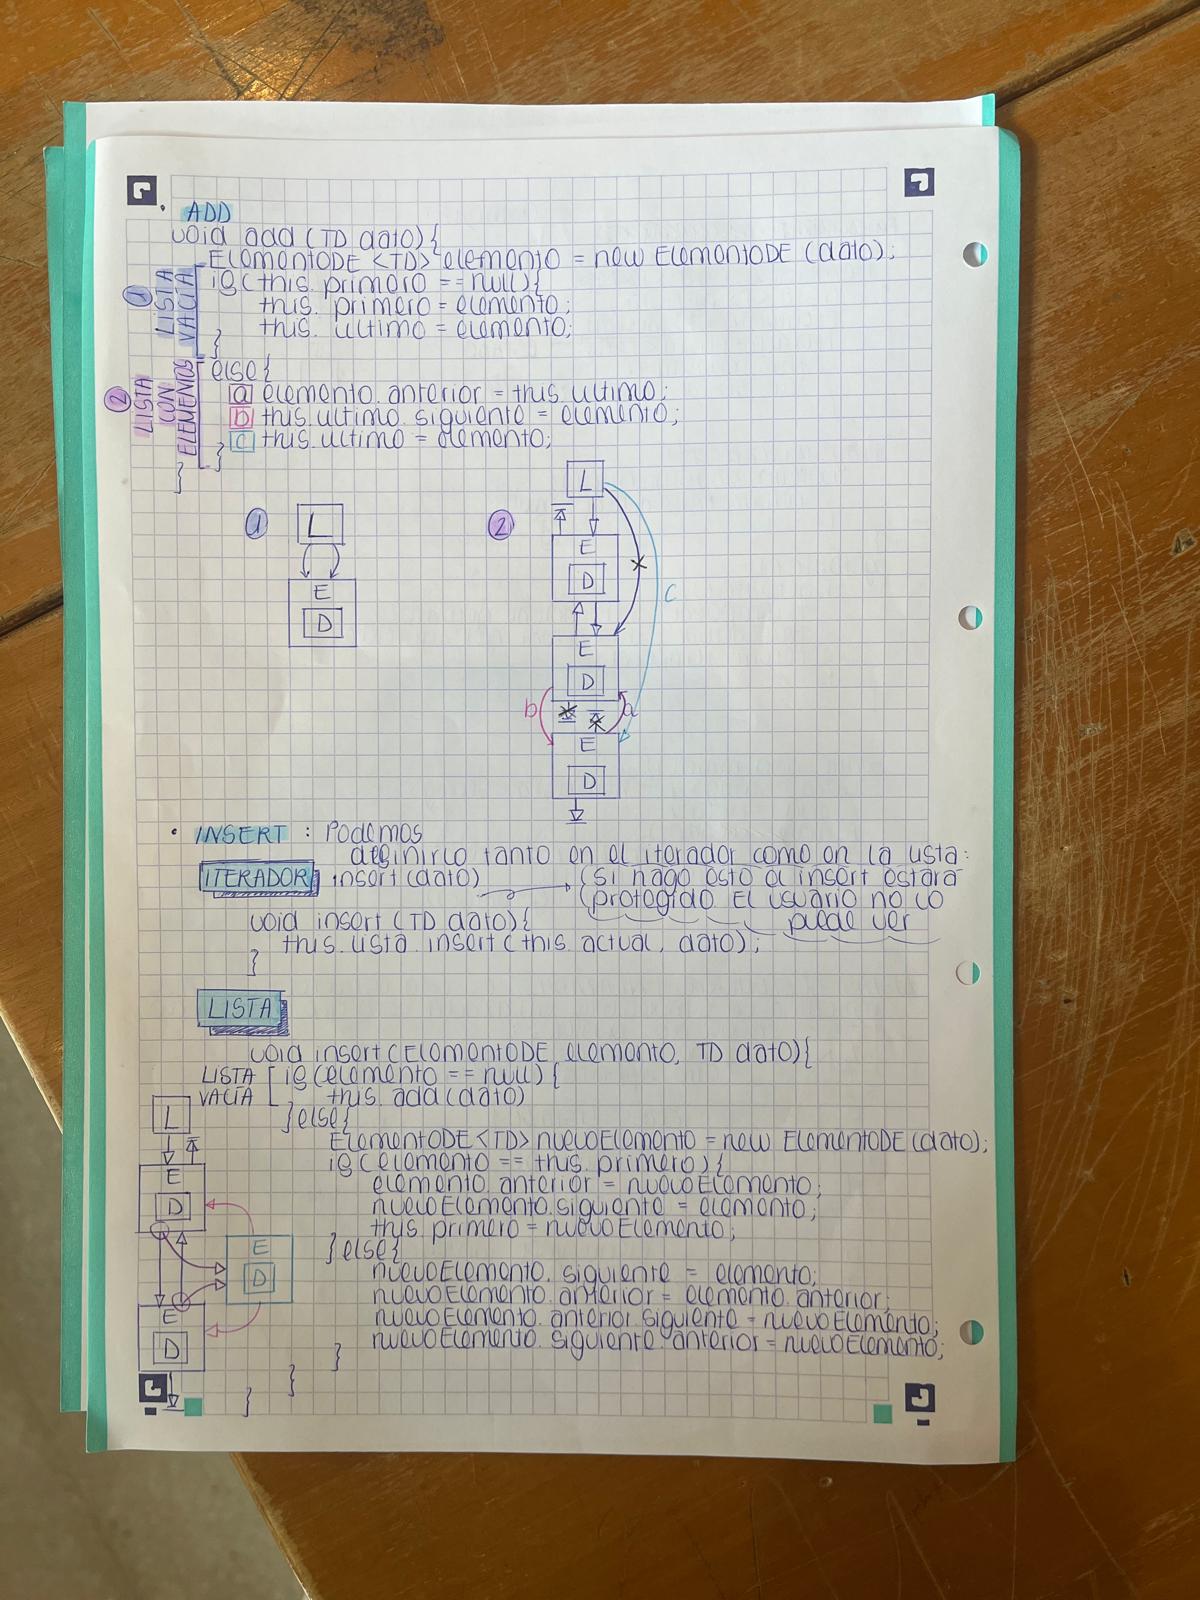 • ADD
void add (TD dato){
ElementoDE <TD> elemento = new ElementoDE (dato);
① LISTA VACÍA
if (this. primero == null){
this. primero = elemento;
this. ultimo = elemento;
}
② LISTA CON ELEMENTOS
else{
a elemento. anterior = this. ultimo;
b this. ultimo. siguiente = elemento;
c this. ultimo = elemento;
}
}
① L
E
D
② L
E
D
c
E
D
b a
E
D
• INSERT : Podemos
definirlo tanto en el iterador como en la lista:
ITERADOR insert (dato) (si hago esto el insert estará
protegido. El usuario no lo
puede ver
void insert (TD dato){
this. lista. insert (this. actual, dato);
}
LISTA
void insert (ElementoDE elemento, TD dato){
LISTA VACÍA
if (elemento == null) {
this. add (dato)
}else{
ElementoDE <TD> nuevoElemento = new ElementoDE (dato);
if (elemento == this. primero) {
elemento. anterior = nuevoElemento;
nuevoElemento. siguiente = elemento;
this. primero = nuevoElemento;
}else{
nuevoElemento. siguiente = elemento;
nuevoElemento. anterior = elemento. anterior;
nuevoElemento. anterior. siguiente = nuevoElemento;
nuevoElemento. siguiente. anterior = nuevoElemento;
}
}
}
L
E
D
E
D
E
D